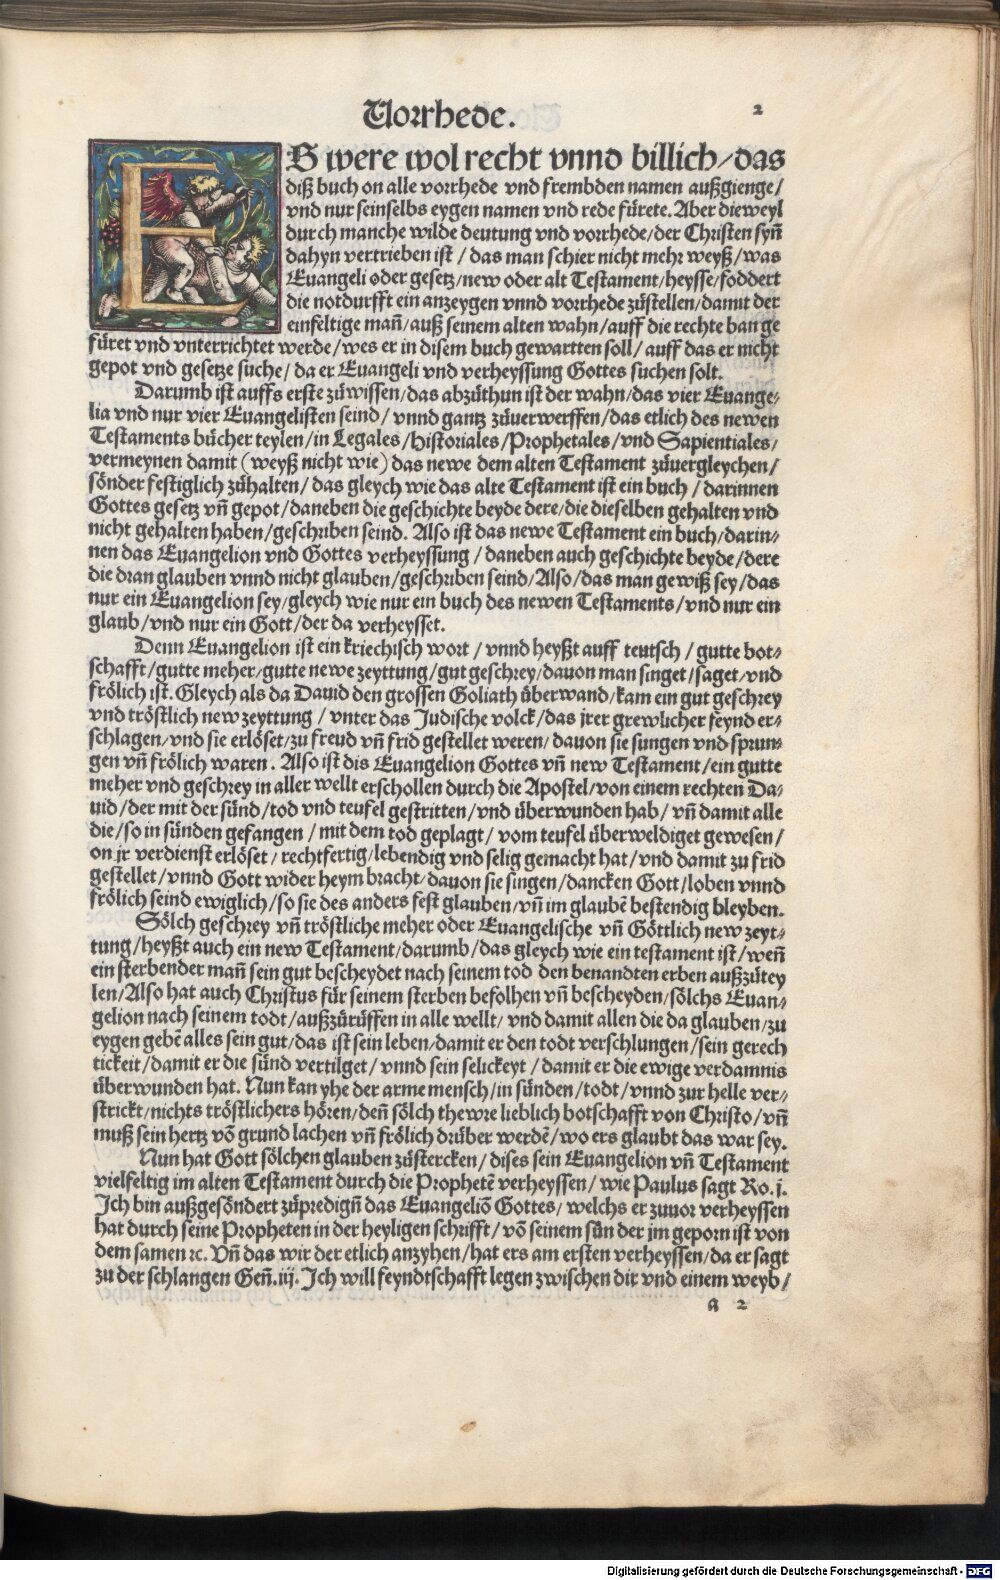 Vorrhede.
2
ES were wol recht vnnd billich/das
diß buch on alle vorrhede vnd frembden namen außgienge/
vnd nur seinselbs eygen namen vnd rede fürete. Aber dieweyl
durch manche wilde deutung vnd vorrhede/der Christen syñ
dahyn vertrieben ist / das man schier nicht mehr weyß/was
Euangeli oder gesetz/new oder alt Testament/heysse/foddert
die notdurfft ein anzeygen vnnd vorrhede zůstellen/damit der
einfeltige mañ/auß seinem alten wahn/auff die rechte bange
füret vnd vnterrichtet werde/wes er in disem buch gewartten soll/ auff das er nicht
gepot vnd gesetze suche/da er Euangeli vnd verheyssung Gottes suchen solt.
Darumb ist auffs erste zůwissen/das abzůthun ist der wahn/das vier Euange⸗
lia vnd nur vier Euangelisten seind/ vnnd gantz zůuerwerffen/das etlich des newen
Testaments bücher teylen/in Legales/Historiales/Prophetales/vnd Sapientiales/
vermeynen damit (weyß nicht wie) das newe dem alten Testament zůuergleychen/
sönder festiglich zůhalten/ das gleych wie das alte Testament ist ein buch / darinnen
Gottes gesetz vñ gepot/daneben die geschichte beyde dere/die dieselben gehalten vnd
nicht gehalten haben/geschriben seind. Also ist das newe Testament ein buch/darin⸗
nen das Euangelion vnd Gottes verheyssung / daneben auch geschichte beyde/dere
die dran glauben vnnd nicht glauben/geschriben seind/Also/das man gewiß sey/das
nur ein Euangelion sey/gleych wie nur ein buch des newen Testaments/vnd nur ein
glaub/vnd nur ein Gott/der da verheysset.
Denn Euangelion ist ein kriechisch wort / vnnd heyßt auff teutsch / gutte bot⸗
schafft/gutte meher/gutte newe zeyttung/gut geschrey/dauon man singet/saget/vnd
frölich ist. Gleych als da Dauid den grossen Goliath überwand/kam ein gut geschrey
vnd tröstlich new zeyttung / vnter das Jüdische volck/das jrer grewlicher feynd er⸗
schlagen/vnd sie erlöset/zu freud vñ frid gestellet weren/dauon sie sungen vnd sprun⸗
gen vñ frölich waren. Also ist dis Euangelion Gottes vñ new Testament/ein gutte
meher vnd geschrey in aller wellt erschollen durch die Apostel/von einem rechten Da⸗
uid/der mit der sünd/tod vnd teufel gestritten/vnd überwunden hab/ vñ damit alle
die/so in sünden gefangen / mit dem tod geplagt/ vom teufel überweldiget gewesen/
on jr verdienst erlöset/ rechtfertig/lebendig vnd selig gemacht hat/vnd damit zu frid
gestellet/vnnd Gott wider heym bracht/dauon sie singen/dancken Gott/loben vnnd
frölich seind ewiglich/so sie des anders fest glauben/vñ im glaubē bestendig bleyben.
Sölch geschrey vñ tröstliche meher oder Euangelische vñ Göttlich new zeyt⸗
tung/heyßt auch ein new Testament/darumb/das gleych wie ein testament ist/weñ
ein sterbender mañ sein gut bescheydet nach seinem tod den benandten erben außzůtey
len/Also hat auch Christus für seinem sterben befolhen vñ bescheyden/sölchs Euan⸗
gelion nach seinem todt/außzůrüffen in alle wellt/ vnd damit allen die da glauben/zu
eygen gebē alles sein gut/das ist sein leben/damit er den todt verschlungen/sein gerech
tickeit/damit er die sünd vertilget/ vnnd sein selickeyt / damit er die ewige verdamnis
überwunden hat. Nun kan yhe der arme mensch/in sünden/todt/vnnd zur helle ver⸗
strickt/nichts tröstlichers hören/deñ sölch thewre lieblich botschafft von Christo/vñ
muß sein hertz vō grund lachen vñ frölich drüber werdē/wo ers glaubt das war sey.
Nun hat Gott sölchen glauben zůstercken/dises sein Euangelion vñ Testament
vielfeltig im alten Testament durch die Prophetē verheyssen/ wie Paulus sagt Ro.j.
Ich bin außgesöndert zůpredigñ das Euangeliō Gottes/ welchs er zuuor verheyssen
hat durch seine Propheten in der heyligen schrifft/ vō seinem sün der jm geporn ist von
dem samen ꝛc. Vñ das wir der etlich anzyhen/hat ers am ersten verheyssen/da er sagt
zu der schlangen Geñ.iij. Ich will feyndtschafft legen zwischen dir vnd einem weyb/
a 2
Digitalisierung gefördert durch die Deutsche Forschungsgemeinschaft - DFG